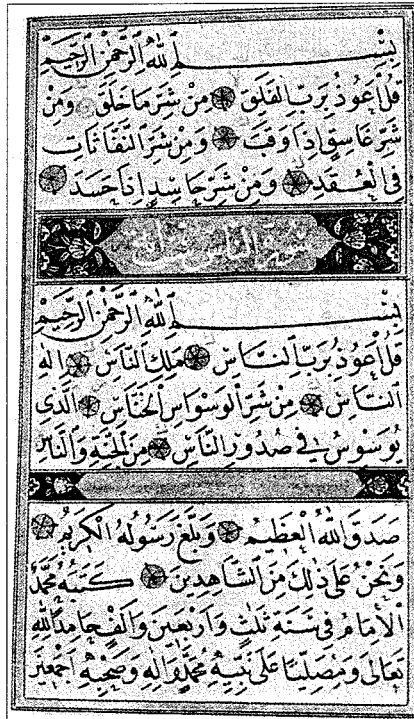 بِسْمِ ٱللّٰهِ ٱلرَّحْمٰنِ ٱلرَّحِيمِ
قُلْ اَعُوذُ بِرَبِّ الْفَلَقِ مِنْ شَرِّ مَا خَلَقَ وَمِنْ
شَرِّ غَاسِقٍ اِذَا وَقَبَ وَمِنْ شَرِّ النَّفَّاثَاتِ
فِى الْعُقَدِ وَمِنْ شَرِّ حَاسِدٍ اِذَا حَسَدَ
سورة الناس ست آيات
بِسْمِ ٱللّٰهِ ٱلرَّحْمٰنِ ٱلرَّحِيمِ
قُلْ اَعُوذُ بِرَبِّ النَّاسِ مَلِكِ النَّاسِ اِلٰهِ
النَّاسِ مِنْ شَرِّ الْوَسْوَاسِ الْخَنَّاسِ الَّذِى
يُوَسْوِسُ فِى صُدُورِ النَّاسِ مِنَ الْجِنَّةِ وَالنَّاسِ
صَدَقَ اللّٰهُ الْعَظِيمُ وَبَلَّغَ رَسُولُهُ الْكَرِيمُ
وَنَحْنُ عَلَى ذٰلِكَ مِنَ الشَّاهِدِينَ كَتَبَهُ مُحَمَّدٌ
الْاِمَامُ فِى سَنَةِ ثَلٰثٍ وَاَرْبَعِينَ وَاَلْفٍ حَامِدًا لِلّٰهِ
تَعَالَى وَمُصَلِّيًا عَلَى نَبِيِّهِ مُحَمَّدٍ وَاٰلِهِ وَصَحْبِهِ اَجْمَعِينَ